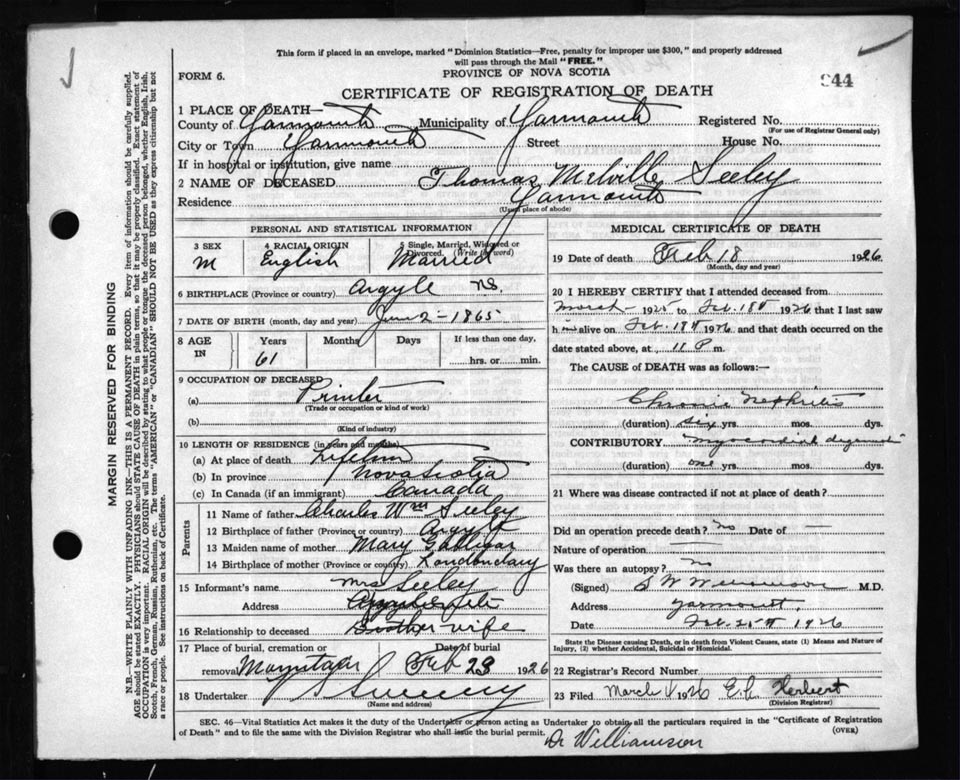 This form if placed in an envelope, marked "Dominion Statistics—Free, penalty for improper use $300," and properly addressed
will pass through the Mail "FREE."
FORM 6.
PROVINCE OF NOVA SCOTIA
944
CERTIFICATE OF REGISTRATION OF DEATH
1 PLACE OF DEATH—
County of Yarmouth Municipality of Yarmouth Registered No.
(For use of Registrar General only)
City or Town Yarmouth Street House No.
If in hospital or institution, give name
2 NAME OF DECEASED Thomas Melville Seeley
Residence Yarmouth
(Usual place of abode)
PERSONAL AND STATISTICAL INFORMATION
3 SEX 4 RACIAL ORIGIN 5 Single, Married, Widowed or Divorced. (Write the word)
M English Married
6 BIRTHPLACE (Province or country) Argyle N.S.
7 DATE OF BIRTH (month, day and year) June 2 - 1865
8 AGE IN Years Months Days If less than one day,
61 hrs. or min.
9 OCCUPATION OF DECEASED
(a) Printer
(Trade or occupation or kind of work)
(b)
(Kind of industry)
10 LENGTH OF RESIDENCE (in years and months)
(a) At place of death Lifetime
(b) In province Nova Scotia
(c) In Canada (if an immigrant) Canada
Parents
11 Name of father Charles Wm Seeley
12 Birthplace of father (Province or country) Argyle
13 Maiden name of mother Mary
14 Birthplace of mother (Province or country) Londondary
15 Informant's name Mrs Seeley
Address
16 Relationship to deceased wife
17 Place of burial, cremation or removal Date of burial
Mountain Feb 23 1926
18 Undertaker Sweeny
(Name and address)
MEDICAL CERTIFICATE OF DEATH
19 Date of death Feb 18 1926
(Month, day and year)
20 I HEREBY CERTIFY that I attended deceased from
March 1925 to Feb. 18th 1926 that I last saw
him alive on Feb. 18th 1926 and that death occurred on the
date stated above, at 11 P. m.
The CAUSE of DEATH was as follows:—
Chronic nephritis
(duration) six yrs. mos. dys.
CONTRIBUTORY myocardial
(duration) one yrs. mos. dys.
21 Where was disease contracted if not at place of death?
Did an operation precede death? no Date of —
Nature of operation —
Was there an autopsy? no
(Signed) S W Williamson M.D.
Address Yarmouth,
Date Feb. 21st 1926
State the Disease causing Death, or in death from Violent Causes, state (1) Means and Nature of
Injury, (2) whether Accidental, Suicidal or Homicidal.
22 Registrar's Record Number
23 Filed March 1 1926 E. L. Herbert
(Division Registrar)
SEC. 46—Vital Statistics Act makes it the duty of the Undertaker or person acting as Undertaker to obtain all the particulars required in the "Certificate of Registration
of Death" and to file the same with the Division Registrar who shall issue the burial permit.
(OVER)
Dr Williamson
MARGIN RESERVED FOR BINDING
N.B.—WRITE PLAINLY WITH UNFADING INK—THIS IS A PERMANENT RECORD. Every item of information should be carefully supplied.
AGE should be stated EXACTLY. PHYSICIANS should STATE CAUSE OF DEATH in plain terms, so that it may be properly classified. Exact statement of
OCCUPATION is very important. RACIAL ORIGIN will be described by stating to what people or tongue the deceased person belonged, whether English, Irish,
Scotch, French, German, Russian, Ruthenian, etc. The terms "AMERICAN" or "CANADIAN" SHOULD NOT BE USED as they express citizenship but not
a race or people. See instructions on back of Certificate.